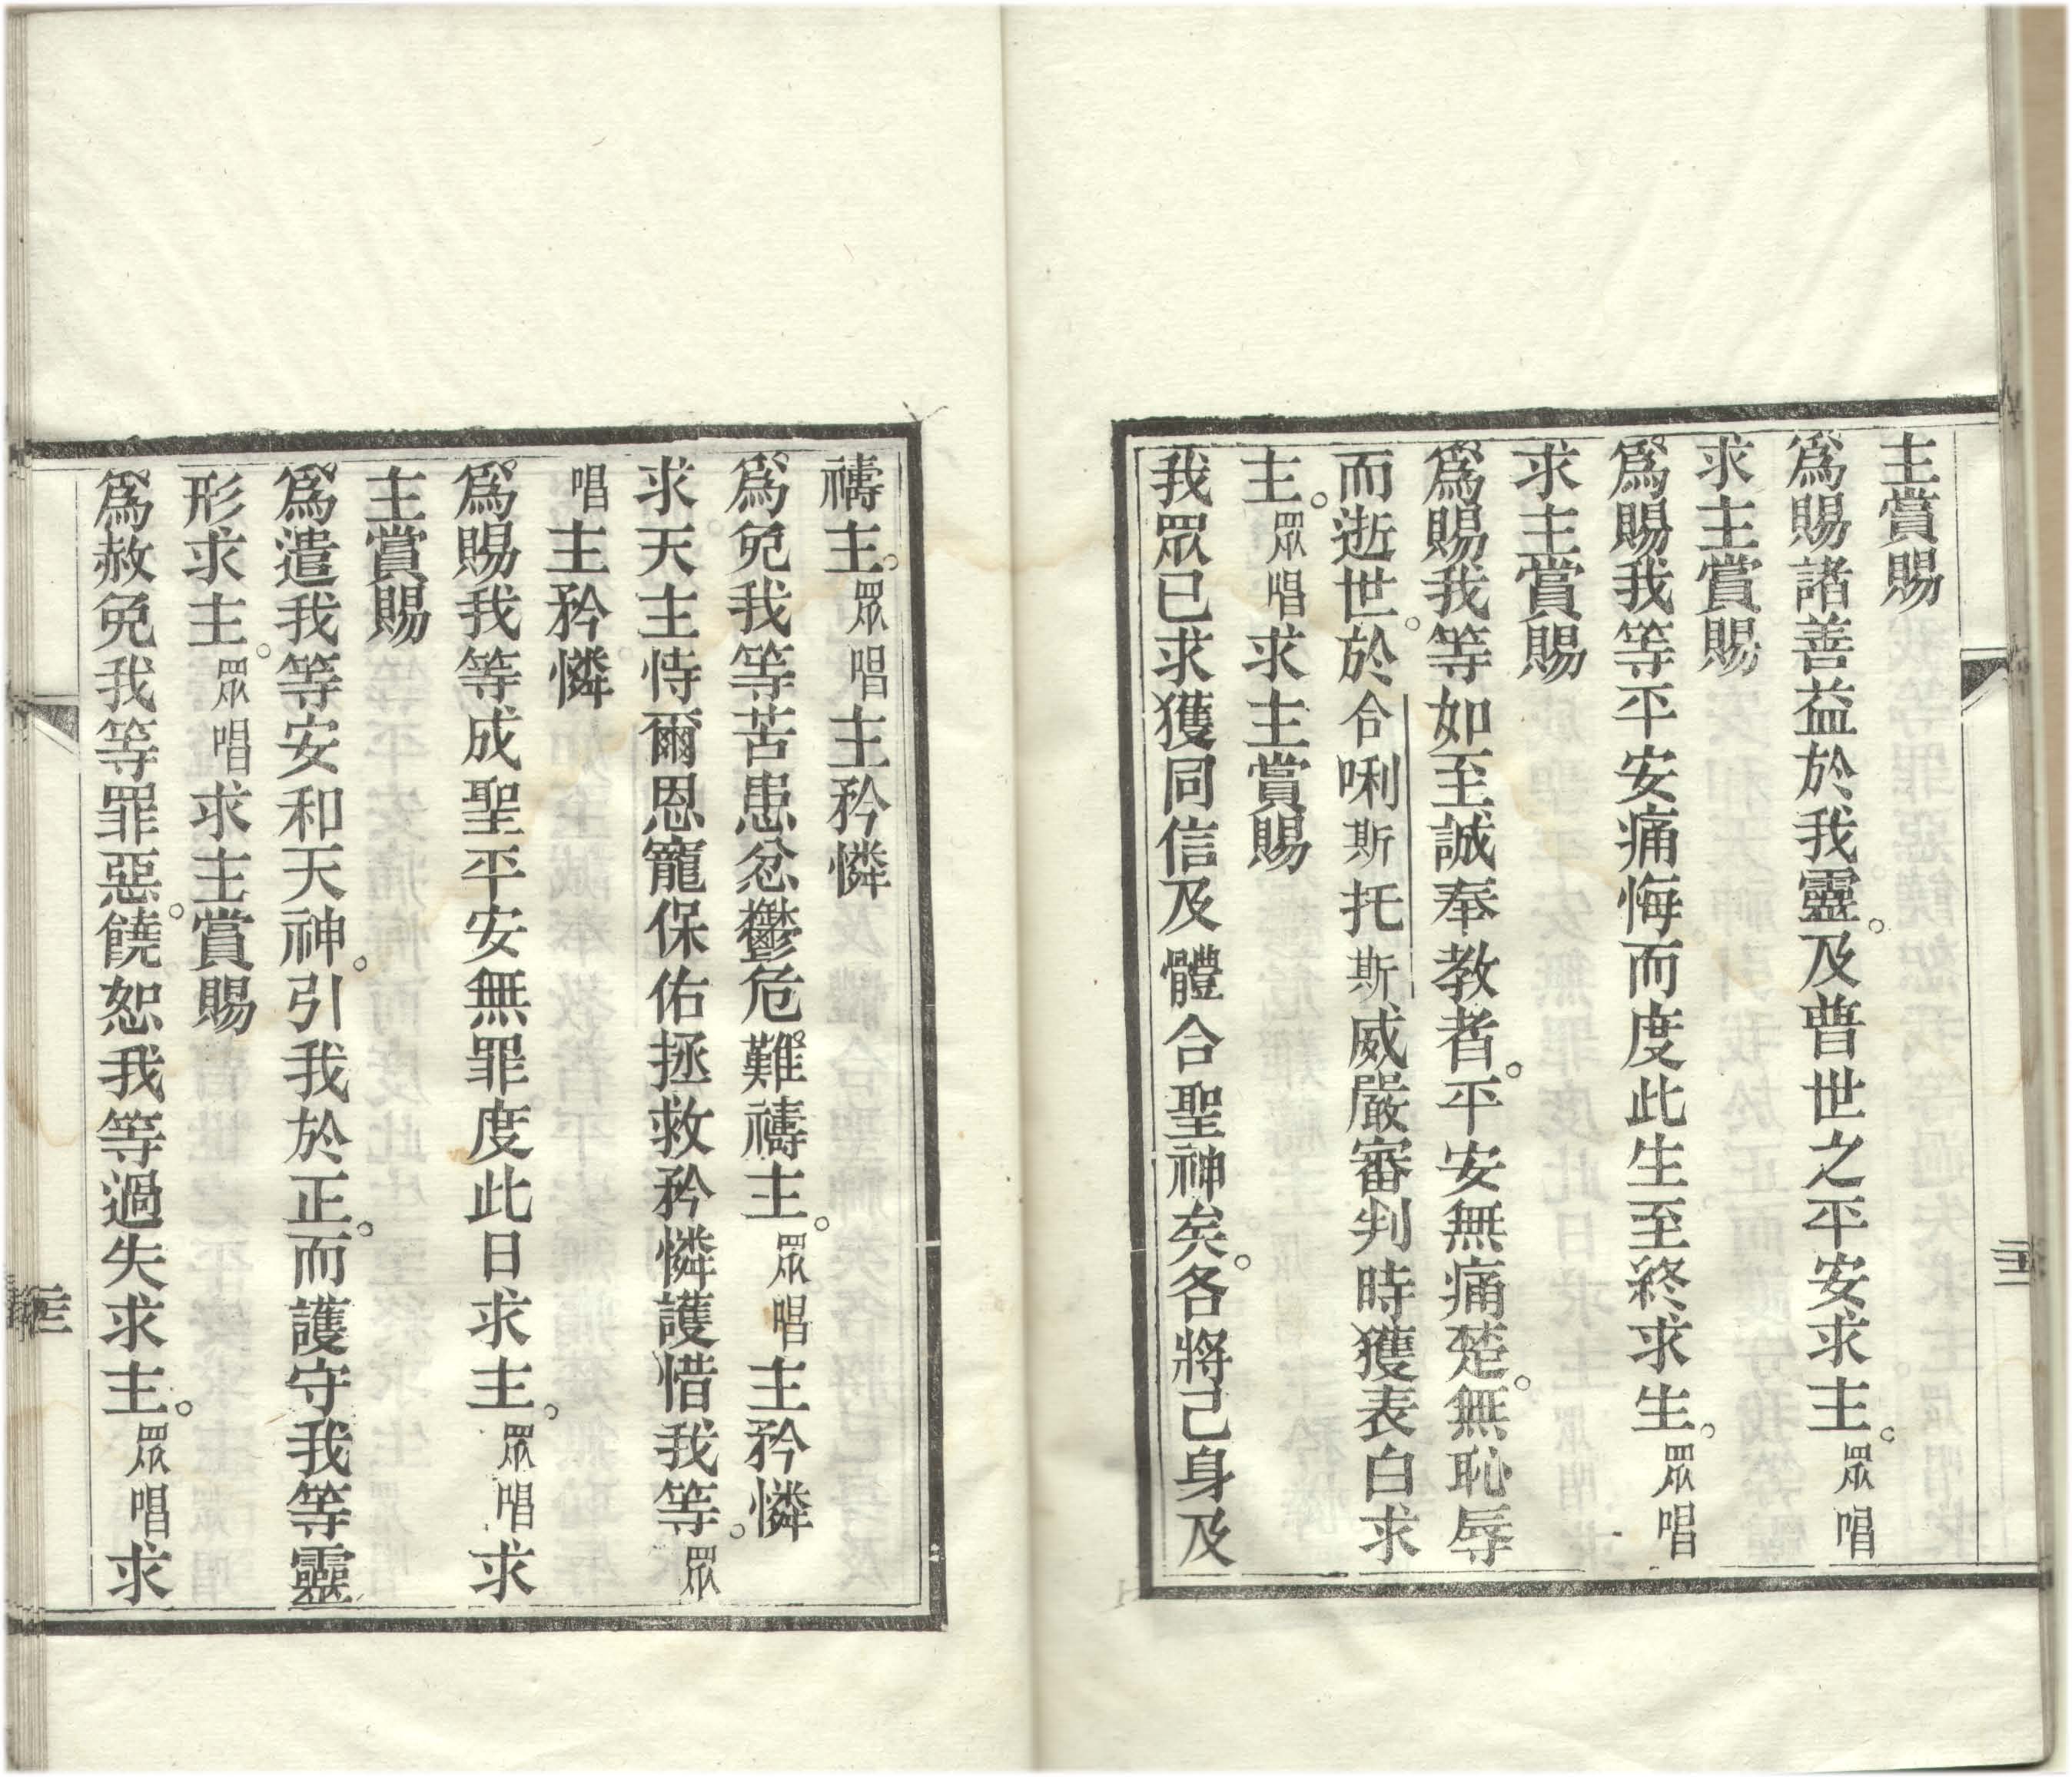 主賞賜
爲賜諸善益於我靈。及普世之平安求主。眾唱
求主賞賜
爲賜我等平安痛悔而度此生至終求生。眾唱
求主賞賜
爲賜我等如至誠奉教者。平安無痛楚。無恥辱
而逝世。於合唎斯托斯威嚴審判時獲表白求
主。眾唱求主賞賜
我眾已求獲同信及體合聖神矣。各將己身及
禱主。眾唱主矜憐
爲免我等苦患忿鬱危難禱主。眾唱主矜憐
求天主恃爾恩寵保佑拯救矜憐護惜我等。眾
唱主矜憐
爲賜我等成聖平安無罪度此日求主。眾唱求
主賞賜
爲遣我等安和天神。引我於正。而護守我等靈
形求主。眾唱求主賞賜
爲赦免我等罪惡。饒恕我等過失求主。眾唱求